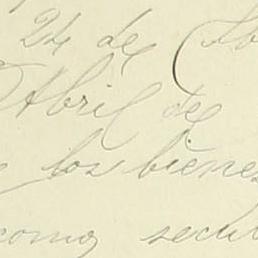 24 de
Abril de
los bienes
como